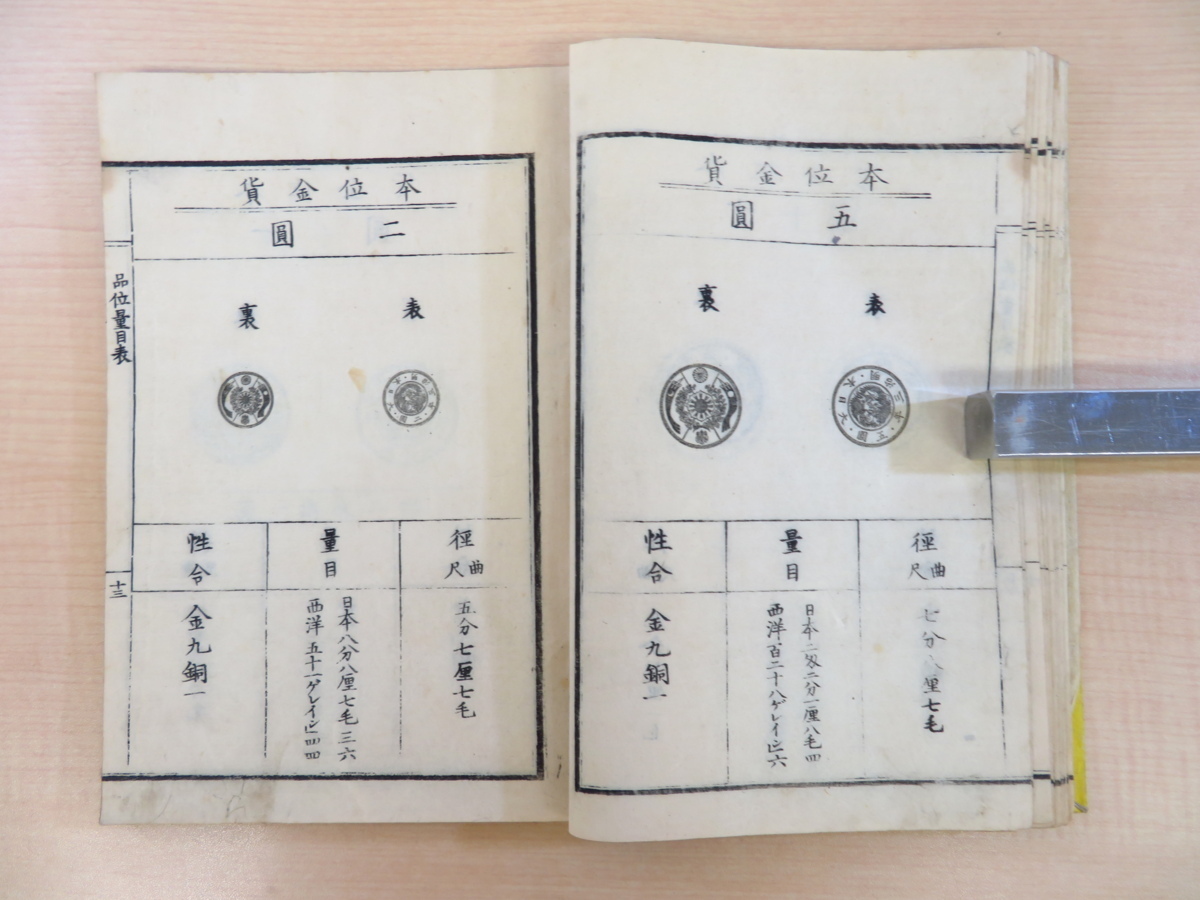 本位金貨
五圓
表
裏
徑曲尺
七分八厘七毛
量目
日本二匁二分一厘八毛四
西洋百二十八ゲレイン六
性合
金九銅一
本位金貨
二圓
表
裏
徑曲尺
五分七厘七毛
量目
日本八分八厘七毛三六
西洋五十一ゲレイン四四
性合
金九銅一
品位量目表
十三